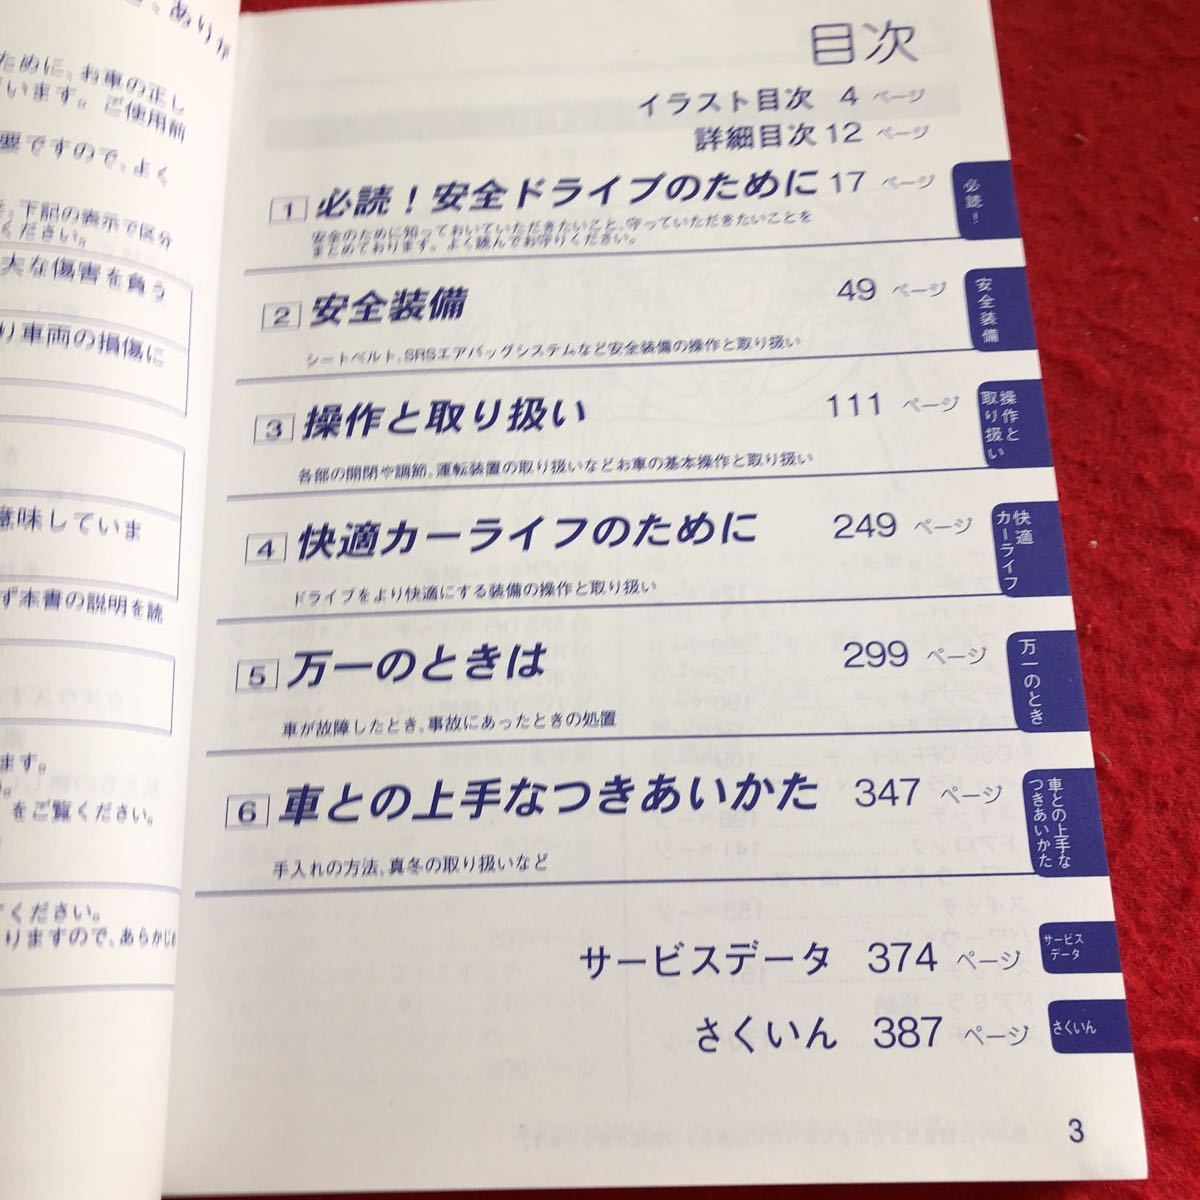 ために、お車の正し
います。ご使用前
要ですので、よく
下記の表示で区分
ください。
大な傷害を負う
り車両の損傷に
意味していま
ず本書の説明を読
ます。
をご覧ください。
ください。
りますので、あらかじめ
目次
イラスト目次 4 ページ
詳細目次 12 ページ
1 必読！安全ドライブのために 17 ページ
安全のために知っておいていただきたいこと、守っていただきたいことを
まとめております。よく読んでお守りください。
必読!!
2 安全装備 49 ページ
シートベルト、SRSエアバッグシステムなど安全装備の操作と取り扱い
安全装備
3 操作と取り扱い 111 ページ
各部の開閉や調節、運転装置の取り扱いなどお車の基本操作と取り扱い
操作と
取り扱い
4 快適カーライフのために 249 ページ
ドライブをより快適にする装備の操作と取り扱い
快適
カーライフ
5 万一のときは 299 ページ
車が故障したとき、事故にあったときの処置
万一のとき
6 車との上手なつきあいかた 347 ページ
手入れの方法、真冬の取り扱いなど
車との上手な
つきあいかた
サービスデータ 374 ページ
サービス
データ
さくいん 387 ページ
さくいん
3